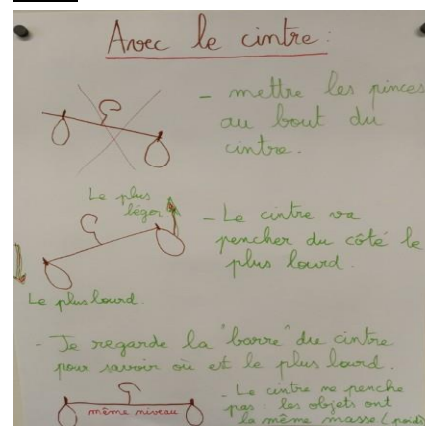 Avec le cintre :
- mettre les pinces
au bout du
cintre.
Le plus
léger
- Le cintre va
pencher du côté le
plus lourd.
Le plus lourd.
- Je regarde la "barre" du cintre
pour savoir où est le plus lourd.
même niveau
- Le cintre ne penche
pas : les objets ont
la même masse (poids